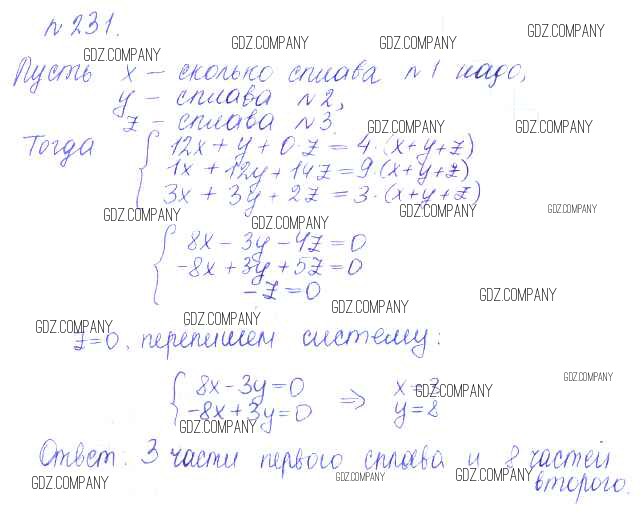 № 231.
GDZ.COMPANY GDZ.COMPANY GDZ.COMPANY GDZ.COMPANY
Пусть x – сколько сплава №1 надо,
y – сплава №2,
z – сплава №3.
GDZ.COMPANY GDZ.COMPANY
Тогда { 12x + y + 0·z = 4·(x+y+z)
1x + 12y + 14z = 9·(x+y+z)
3x + 3y + 2z = 3·(x+y+z)
GDZ.COMPANY GDZ.COMPANY GDZ.COMPANY GDZ.COMPANY
{ 8x – 3y – 4z = 0
-8x + 3y + 5z = 0
–z = 0
GDZ.COMPANY GDZ.COMPANY GDZ.COMPANY GDZ.COMPANY
z=0, перепишем систему:
{ 8x – 3y = 0 ⇒ x = 3
-8x + 3y = 0 y = 8
GDZ.COMPANY GDZ.COMPANY GDZ.COMPANY
Ответ: 3 части первого сплава и 8 частей
второго.
GDZ.COMPANY GDZ.COMPANY GDZ.COMPANY